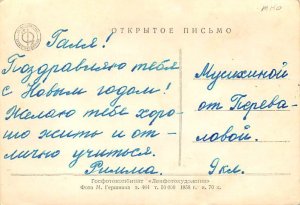 ОТКРЫТОЕ ПИСЬМО
Галя!
Поздравляю тебя
с Новым годом!
Желаю тебе хоро-
шо жить и от-
лично учиться.
Римма.
Мусихиной
от Перева-
ловой.
9 кл.
Госфотокомбинат «Ленфотохудожник»
Фото М. Гершмана з. 864 т. 50 000 1958 г. ц. 70 к.